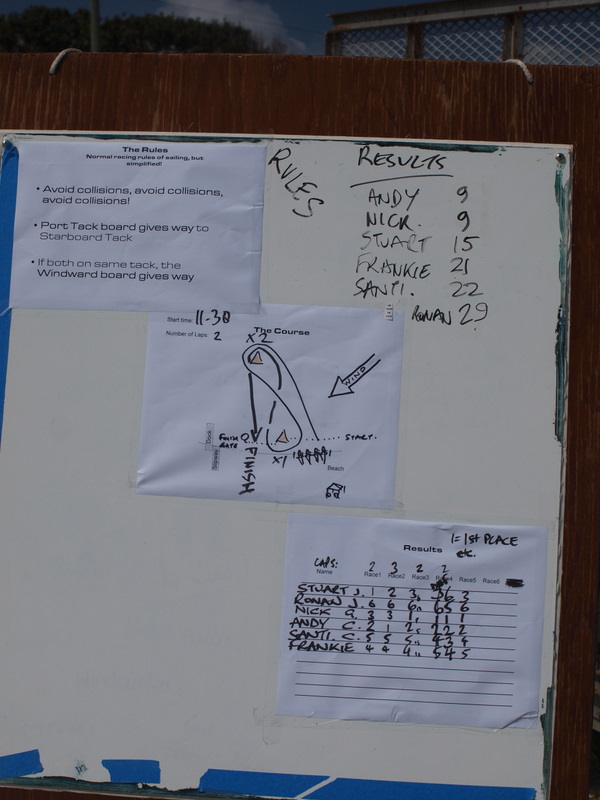 The Rules
Normal racing rules of sailing, but
simplified!
• Avoid collisions, avoid collisions,
avoid collisions!
• Port Tack board gives way to
Starboard Tack
• If both on same tack, the
Windward board gives way
RULES
RESULTS
ANDY 9
NICK. 9
STUART 15
FRANKIE 21
SANTI. 22
RONAN 29
Start time: 11-30
Number of Laps: 2
The Course
X2
WIND
Dock
FINISH
GATE
START.
X1
FINISH
Beach
Results
1=1st PLACE
etc.
LAPS: 2 3 2 2
Name Race1 Race2 Race3 Race4 Race5 Race6
STUART J. 1 2 3 3 6 3
RONAN J. 6 6 6 6 5 6
NICK G. 3 3 1 1 1 1
ANDY C. 2 1 2 2 2 2
SANTI. C. 5 5 5 4 3 4
FRANKIE 4 4 4 5 4 5